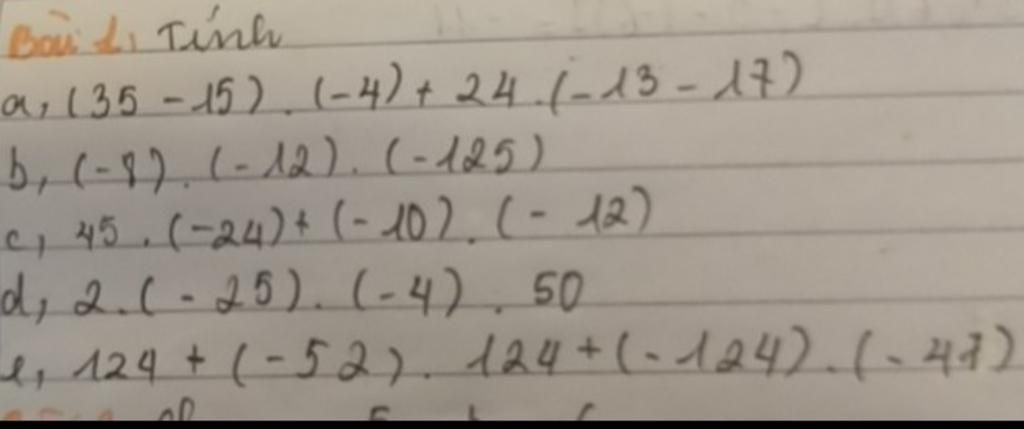 Bài 1, Tính
a, (35 - 15) . (-4) + 24 . (-13 - 17)
b, (-8) . (-12) . (-125)
c, 45 . (-24) + (-10) . (- 12)
d, 2 . (- 25) . (-4) . 50
e, 124 + (-52) . 124 + (-124) . (-47)